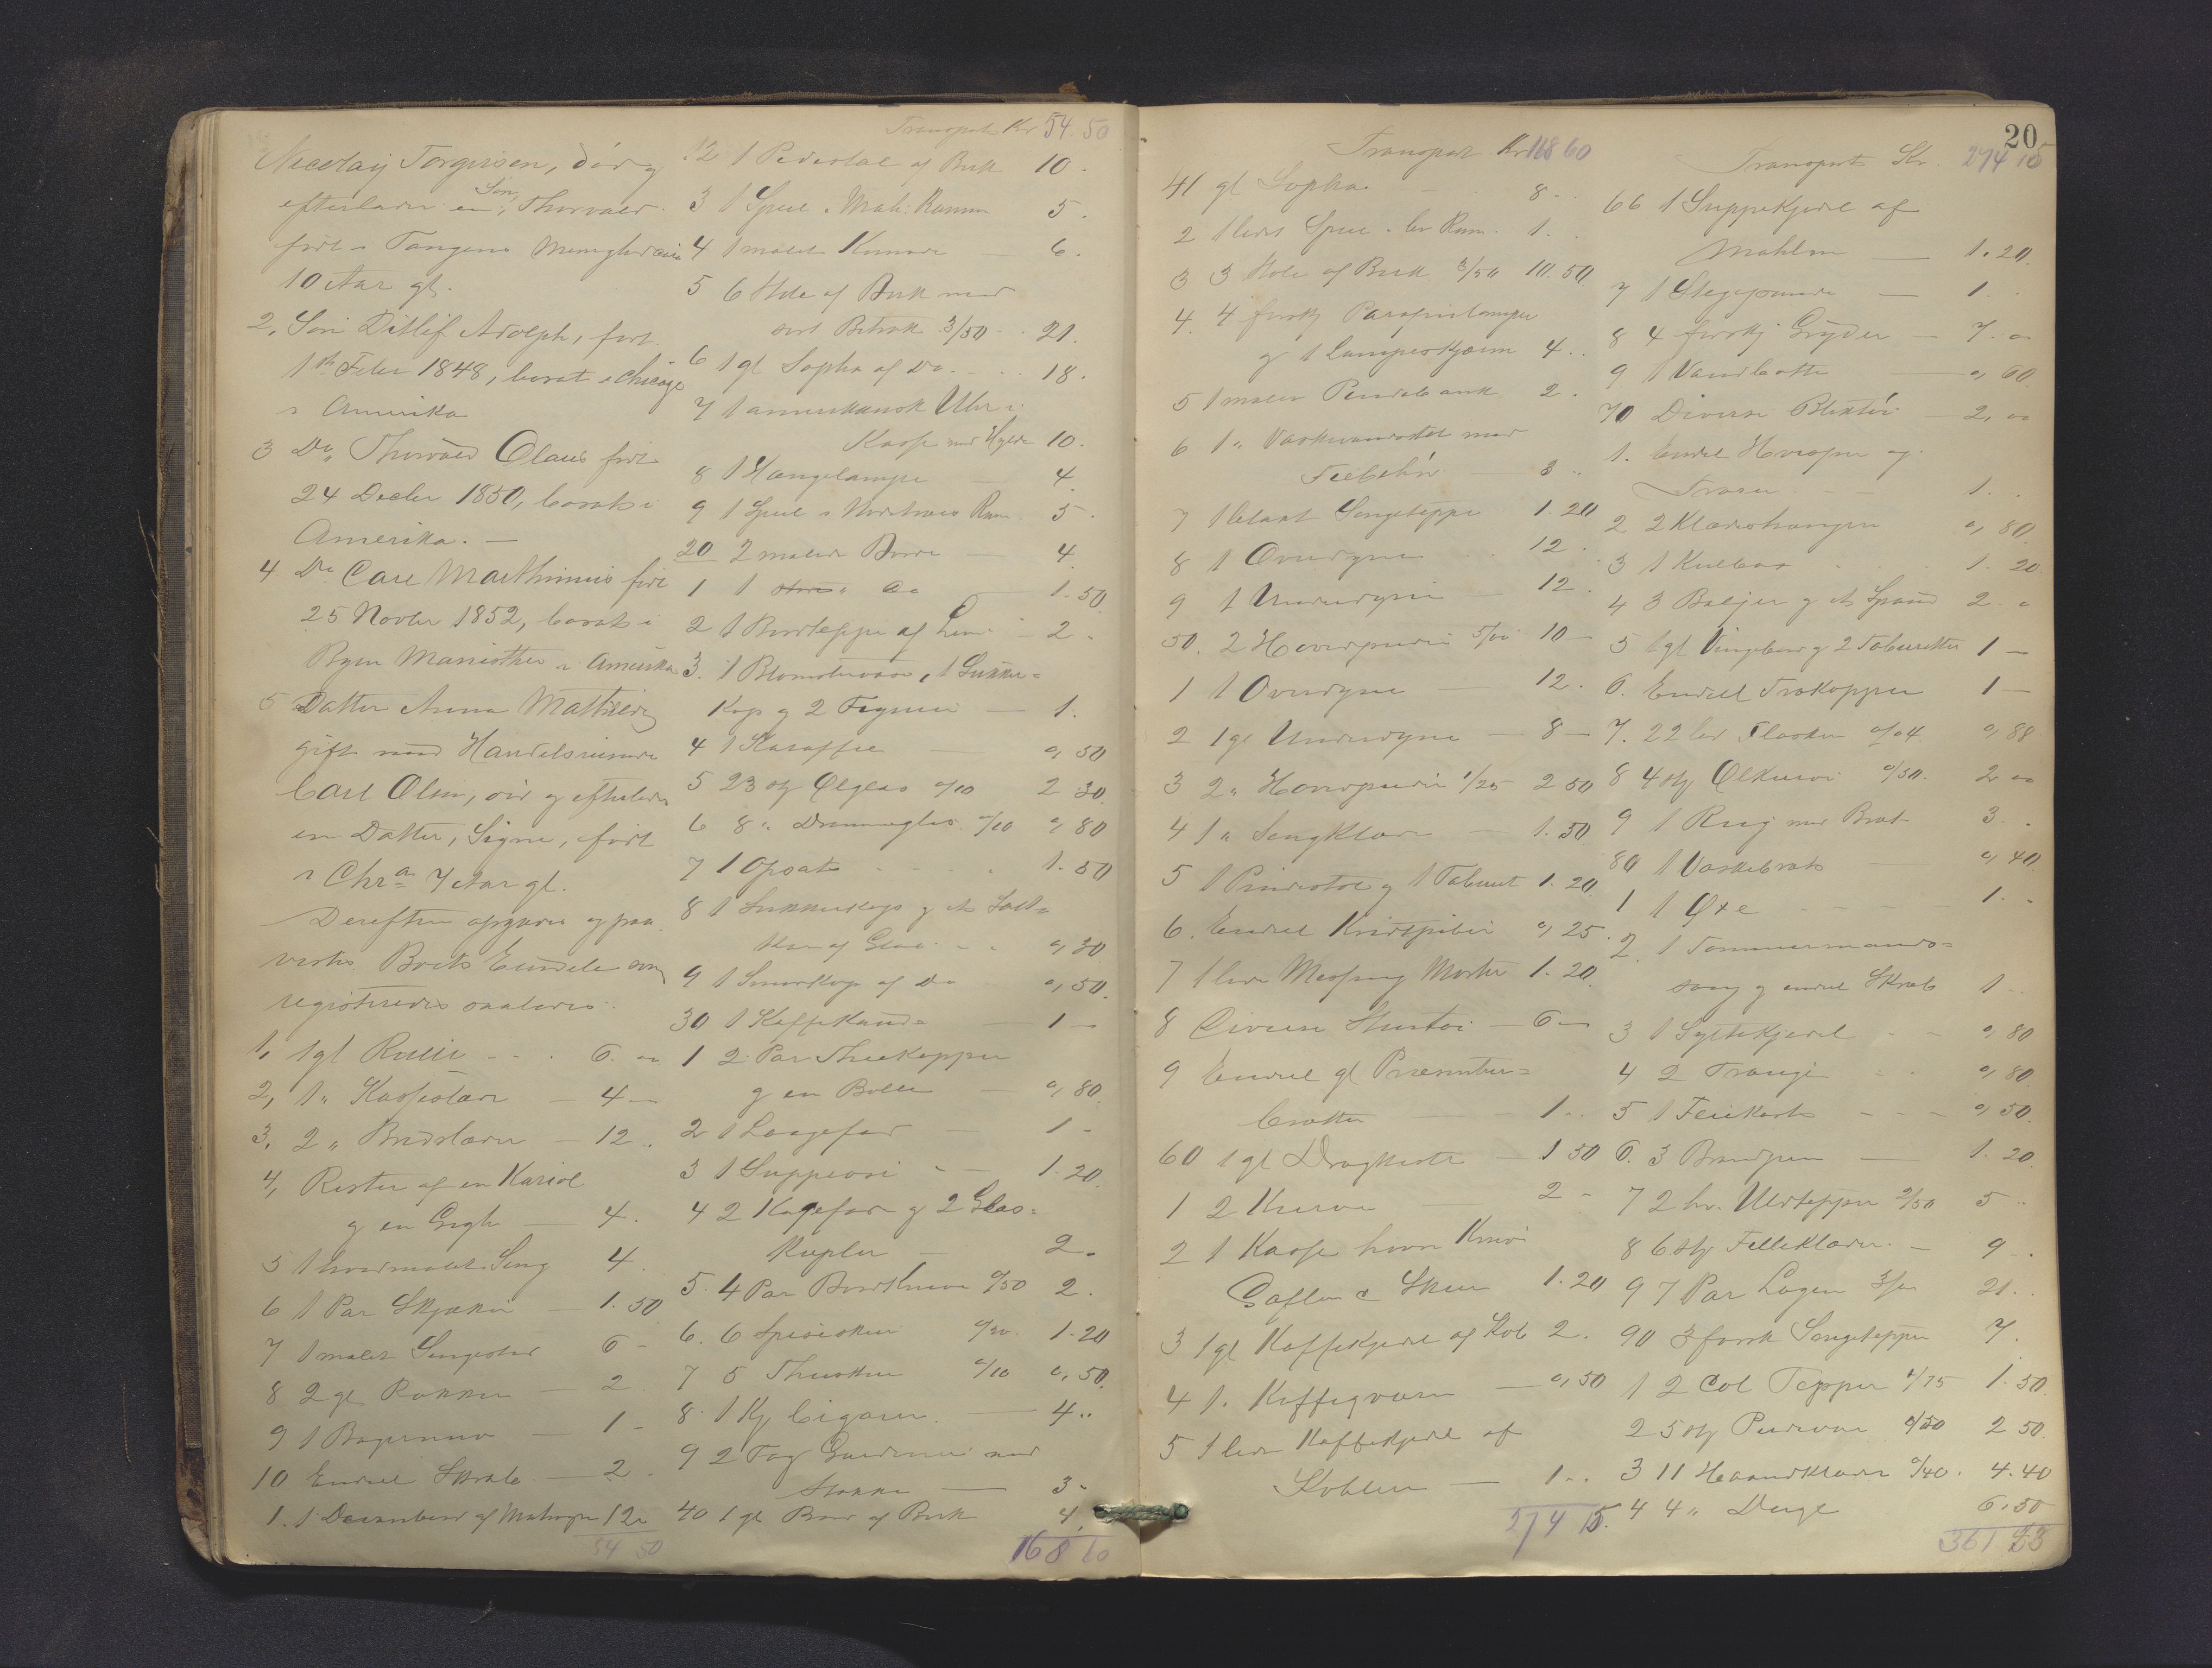 Nicolay Torgersen, död og
efterlader en Søn, Thorvald
født i Tangens Menighed ca
10 Aar gl.
2, Søn Ditlif Adolph, født
1ste Feber 1848, bosat i Chicago
i Amerika
3 Do Thorvald Olaus født
24 Decbr 1850, bosat i
Amerika. —
4 Do Carl Marthinius født
25 Novbr 1852, bosat i
Byen Manisthee i Amerika
5 Datter Anna Mathilde
gift med Handelsreisende
Carl Olsen, død og efterlader
en Datter, Signe, født
i Chra 7 Aar gl.
Derefter opgaves og paa
vistes Boets Eiendele som
registreredes saaledes:
1, 1 gl Rulle - - . 6. "
2, 1 " Kasseslæde — 4 —
3. 2 " Bredslæder — 12 ..
4, Rester af en Kariol
og en Gigh — 4.
5 1 hvidmalet Seng 4.
6 1 Par Skjæker — 1. 50
7 1 malet Sengested 6 -
8 2 gl Rokker — 2.
9 1 Bagerovn — 1 -
10 Endel Skrab — 2.
1. 1 Divanbord af Mahogni 12 "
54 50
Transport Kr 54. 50
12 1 Pidestal af Birk 10 .
3 1 Speil i Mah: Ramme 5 .
4 1 malet Komode — 6 .
5 6 Stole af Birk med
sort Betræk 3/50 - - 21.
6 1 gl Sopha af Do. - - . 18.
7 1 amerikansk Uhr i
Kasse med Hylde 10.
8 1 Hængelampe — 4.
9 1 Speil i Nødtræes Ram 5.
20 2 malede Borde — 4.
1 1 store " do — 1. 50
2 1 Bordteppe af Lin — 2 -
3. 1 Blomstervase, 1 Sukker=
Kop og 2 Figurer — 1.
4 1 Karaffel — 0, 50
5 23 stk Ølglas 0/10 2 30.
6 8 " Dramseglas 0/10 0, 80
7 1 Opsats - - - . 1. 50
8 1 Sukkerkop og et Salt=
Kar af Glas - - 0, 30
9 1 Smørkop af Do 0, 50.
30 1 Kaffekande — 1 —
1 2 Par Theekopper
og en Bolle — 0, 80.
2 1 Laagefad — 1 -
3 1 Suppeøse - — 1. 20.
4 2 Kagefade og 2 Glas=
Kupler — 2.
5. 4 Par Bordknive 0/50 2.
6. 6 Spiseskeer 0/20. 1. 20
7 5 Theskeer 0/10 0, 50.
8. 1 Kj Cigarer — 4 "
9 2 Fag Gardiner med
Stokke — 3 -
40 1 gl Bord af Birk 4.
168 60
Transport Kr 168 60
41 gl Sopha — 8 - .
2 1 lidet Speil i br Ram. 1. .
3 3 Stole af Birk 3/50 10. 50.
4. 4 forskj Parafinlamper
og 1 Lampeskjærm 4 . .
5 1 malet Pindebænk 2 .
6 1 " Vaskvandstel med
Tilbehør — 3 ..
7 1 blaat Sengeteppe 1. 20
8 1 Overdyne . . 12.
9 1 Underdyne — 12.
50. 2 Hovedpuder 5/00 10 —
1 1 Overdyne — 12.
2 1 gl Underdyne — 8 —
3 2 " Hovedpuder 1/25 2 50
4 1 " Sengklæde — 1. 50
5 1 Pindestol og 1 Taburet 1. 20
6. Endel Kridtpiber 0, 25.
7 1 liden Messing Morter 1. 20.
8 Diverse Stentøi — 6 —
9 Endel gl Præsenter=
brætter — 1 . .
60 1 gl Dragkiste — 1 50
1 2 Kurve — 2 -
2 1 Kasse hvori Knive
Gafler & Skeer 1. 20
3 1 gl Kaffekjedel af Kob 2 .
4 1. Kaffeqværn — 0, 50
5 1 liden Kaffekjedel af
Kobber — 1 . .
274 15.
20
Transport Kr. 274 15
66 1 Suppekjedel af
Malm — 1. 20.
7 1 Stegepande — 1 . .
8 4 forskj Gryder — 7. "
9. 1 Vandbøtte — 0, 60.
70 Diverse Bliktøi — 2, "
1. Endel Hvidsper og
Traser — 1. .
2 2 Klædestænger 0, 80.
3 1 Kulbox . . 1. 20.
4 3 Baljer og et Spand 2 - "
5 1 gl Vingebord og 2 Taburetter 1 —
6. Endel Trækopper 1 —
7. 22 led Flasker 0/04 0, 88
8 4 stk Ølkurve 0/50. 2 "
9 1 Brøg med Bræt 3 . .
80 1 Vaskebræt — 0, 40.
1 1 Øxe - - - - 1. -
2. 1 Tømmermands=
saug og endel Skrab 1 - -
3 1 Syltekjedel - - 0, 80
4 2 Trauge - . 0, 80.
5 1 Feiekost - - - 0, 50.
6. 3 Brandjern — 1. 20.
7 2 hv. Uldtepper 2/50 5 ..
8 6 stk Felleklæder. — 9 - .
9 7 Par Lagen 3/00 21..
90 3 forsk Sengetepper 7.
1 2 Col Tepper 0/75 1. 50.
2 5 stk Pudevar 0/50 2 50.
3 11 Haandklæder 0/40. 4. 40
4 4 " Duge 6, 50
361 83